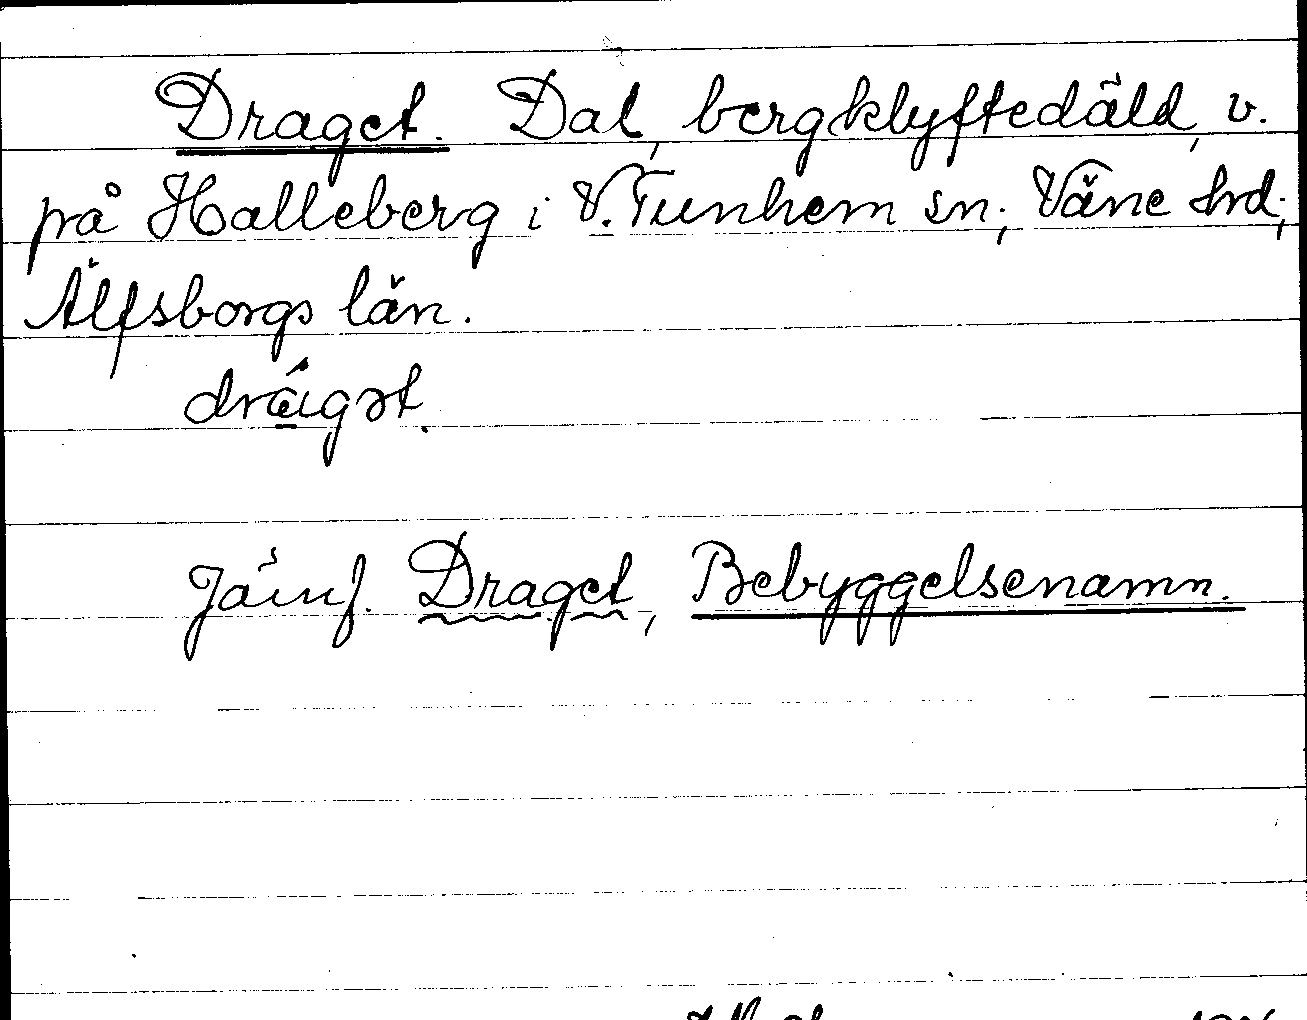 Draget. Dal, bergklyftedäld, v.
på Halleberg i V. Tunhem sn; Väne hrd;
Älfsborgs län.
drágət.
Jämf. Draget, Bebyggelsenamn.